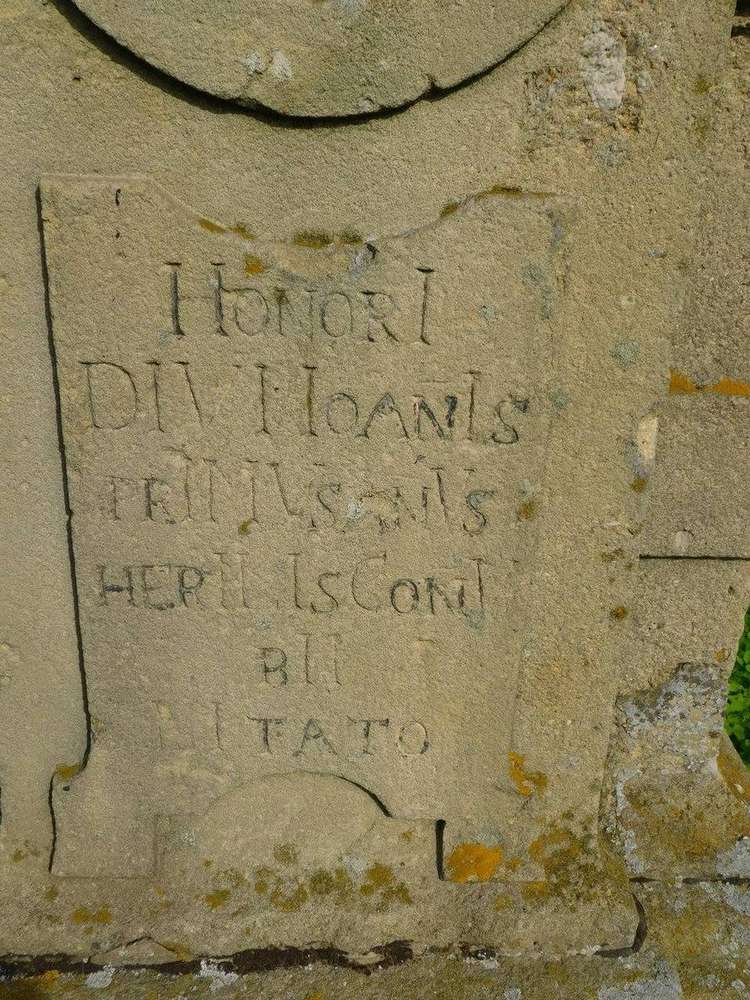 HONORI
DIVI IOANIS
PRIMUS ANUS
HERILIS CONI
BII
TATO